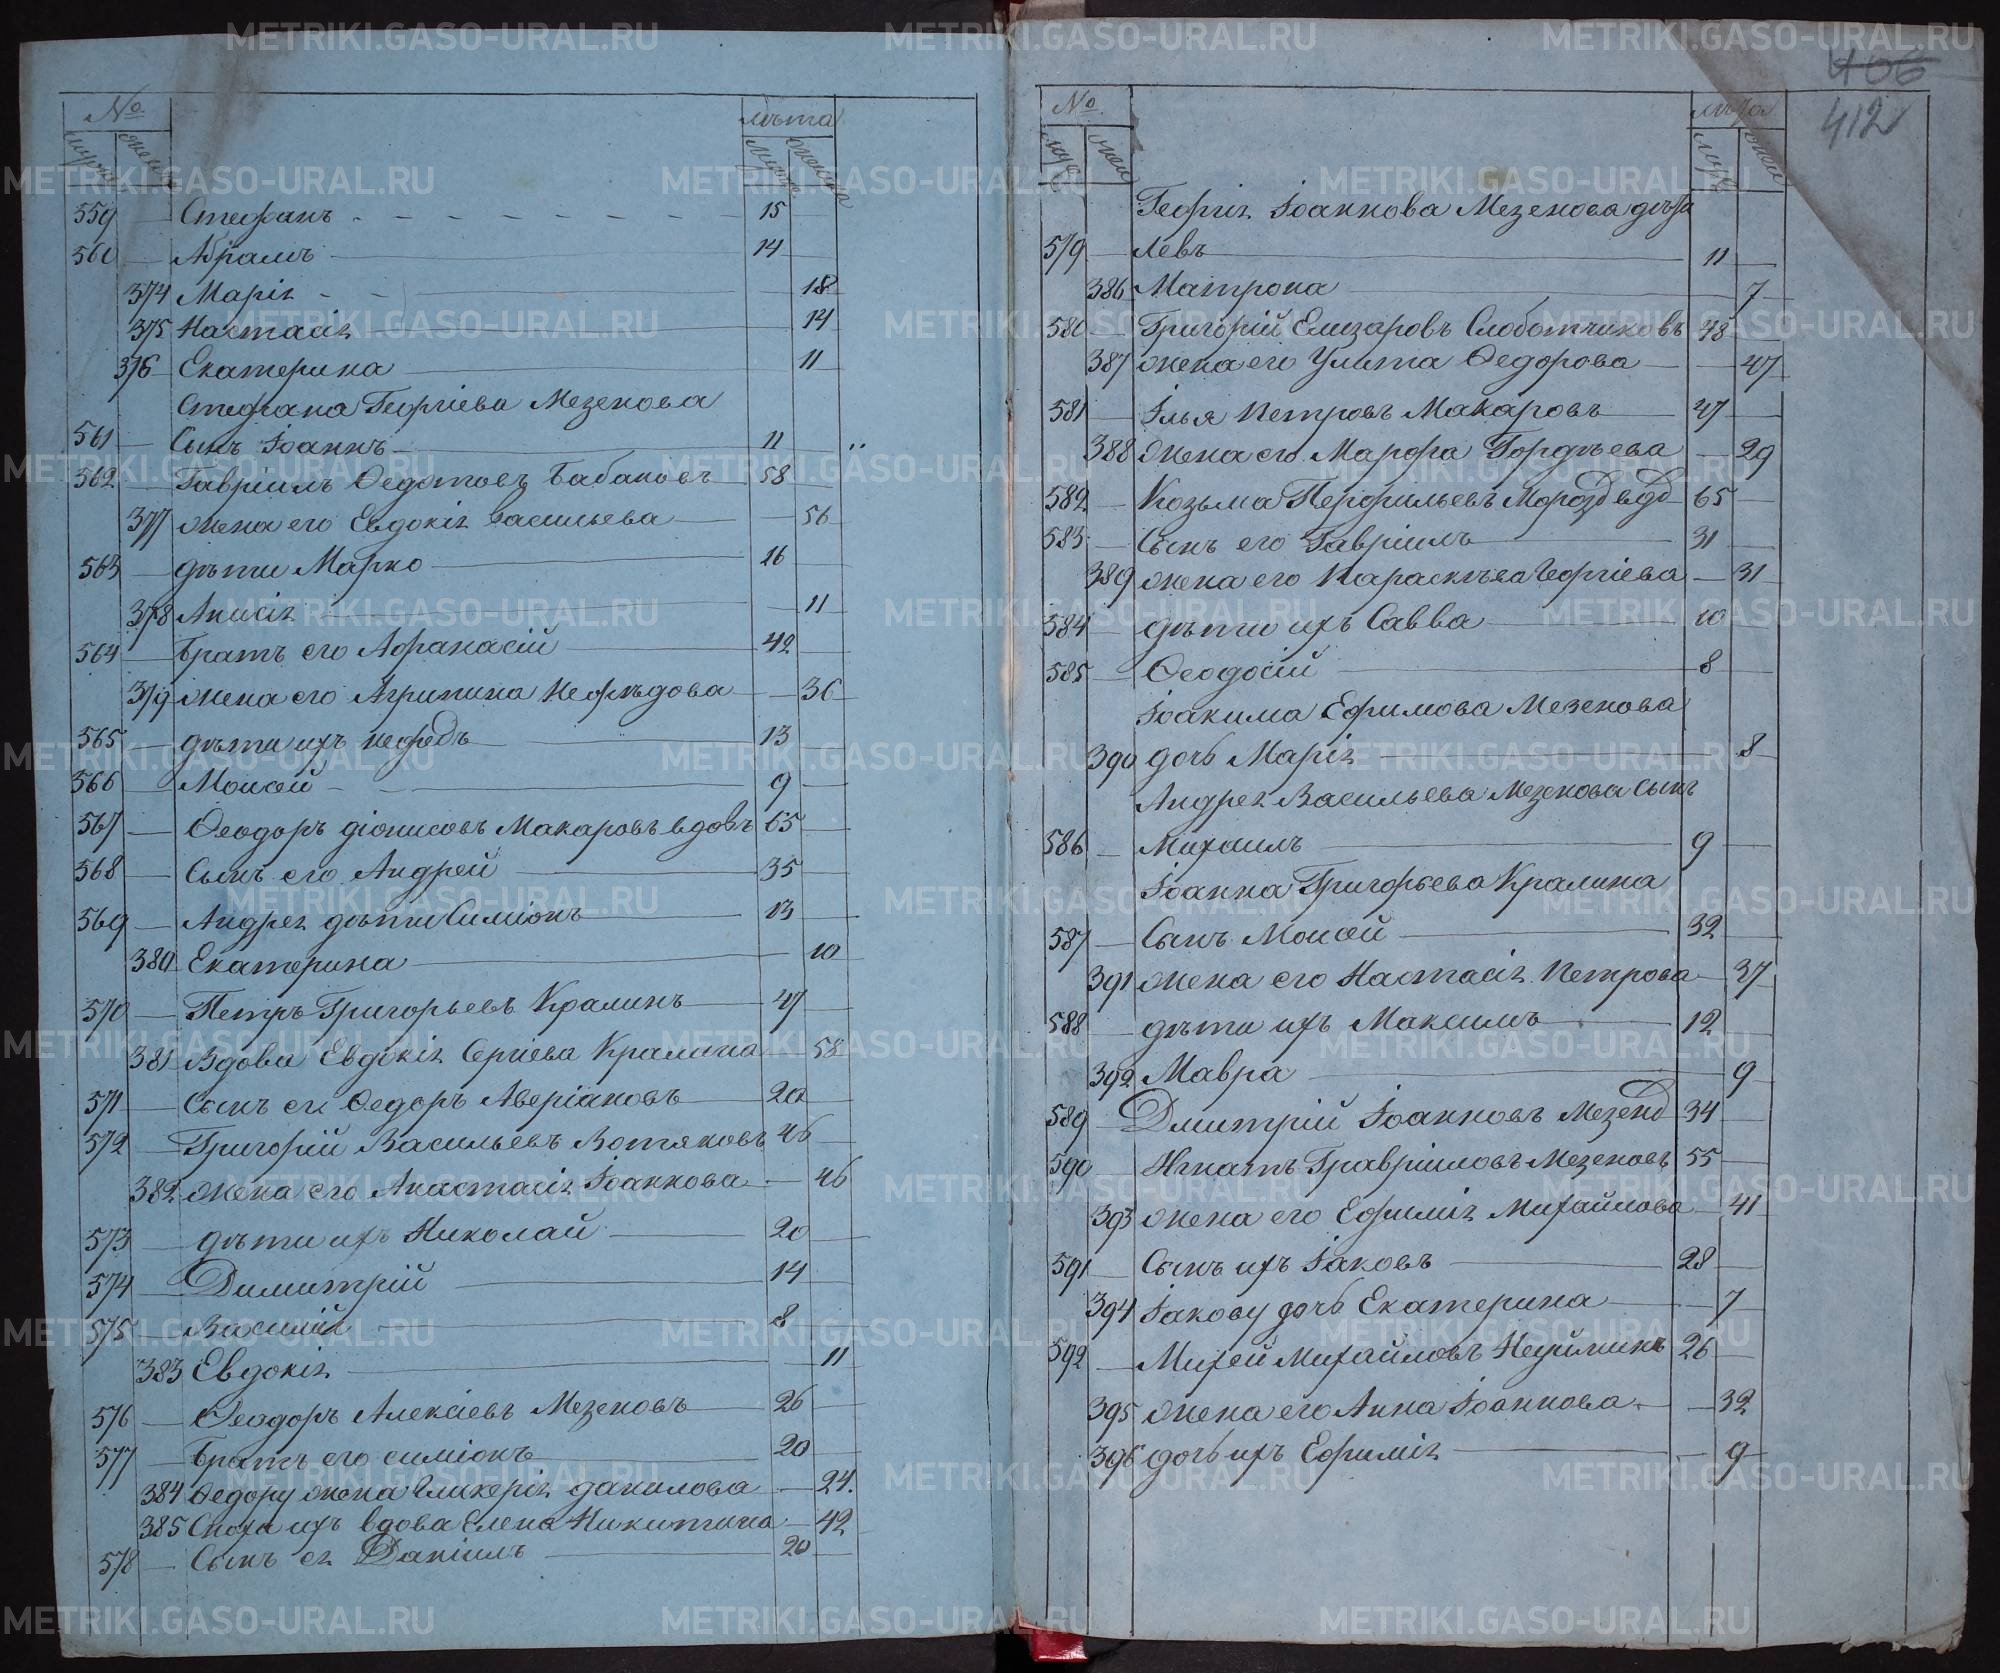 № лѣта
мужс женск мужс женска
559 Стефанъ 15
560 Абрамъ 14
374 Марія 18
375 Настасія 14
376 Екатерина 11
Стефана Георгіева Мезенова
561 Сынъ Іоаннъ 11
562 Гавріилъ Ѳедотовъ Бабановъ 58
377 жена его Евдокія Васильева 56
563 дѣти Марко 16
378 Анисія 11
564 Братъ его Афанасій 42
379 жена его Агрипина Нефѣдова 36
565 дѣти ихъ Нефедъ 13
566 Моисей 9
567 Ѳеодоръ діонисовъ Макаровъ вдовъ 65
568 Сынъ его Андрей 35
569 Андрея дѣти Симіонъ 13
380 Екатерина 10
570 Петръ Григорьевъ Кралинъ 47
381 Вдова Евдокія Сергіева Кралина 58
571 Сынъ ея Ѳедоръ Аверіановъ 20
572 Григорій Васильевъ Вотяковъ 46
382 жена его Анастасія Іоаннова 46
573 дѣти ихъ Николай 20
574 Димитрій 14
575 Василій 8
383 Евдокія 11
576 Ѳеодоръ Алексіевъ Мезеновъ 26
577 Братъ его симіонъ 20
384 Ѳедору жена Гликерія данилова 24.
385 Сноха ихъ вдова Елена Никитина 42
578 Сынъ ея Даніилъ 20
406
412
№ лѣта
мужс женс мужс женс
Георгія Іоаннова Мезенова дѣти
579 Левъ 11
386 Матрона 7
580 Григорій Елизаровъ Слоботчиковъ 48
387 жена его Улита Ѳедорова 47
581 Илья Петровъ Макаровъ 47
388 жена его Марфа Гордѣева 29
582 Козьма Перфильевъ Морозовъ вдо 65
583 Сынъ его Гавріилъ 31
389 жена его Параскѣва Георгіева 31
584 дѣти ихъ Савва 10
585 Ѳеодосій 8
Іоакима Ефимова Мезенова
390 дочь Марія 8
Андрея Васильева Мезенова Сынъ
586 Михаилъ 9
Іоанна Григорьева Кралина
587 Сынъ Моисей 32
391 жена его Настасія Петрова 37
588 дѣти ихъ Максимъ 12
392 Мавра 9
589 Дмитрій Іоанновъ Мезенов 34
590 Игнатъ Гавріиловъ Мезеновъ 55
393 жена его Ефимія Михайлова 41
591 Сынъ ихъ Іаковъ 28
394 Іакову дочь Екатерина 7
592 Михей Михайловъ 26
395 жена его Анна Іоаннова 32
396 дочь ихъ Ефимія 9